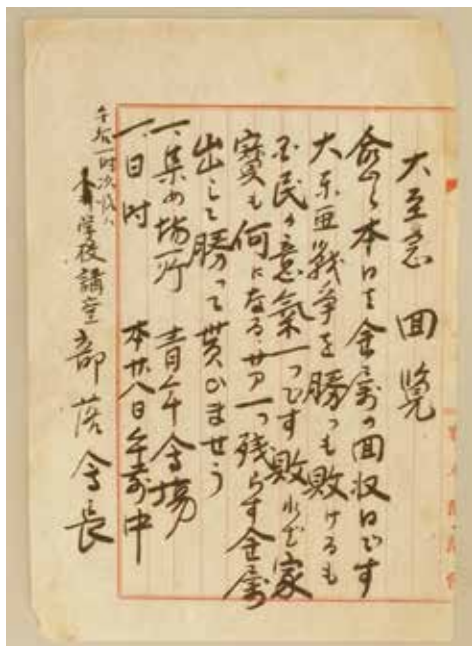 大至急 回覧
愈々本日は金属の回収日です
大东亜戦争を勝つも敗けるも
国民の意氣一つです敗れて家
寳も何になる 一つ残らず金属
出して勝って貰ひませう
一、集め場所 青年会場
一、日時 本廿八日午前中
午后一時
学校講堂 部落会長